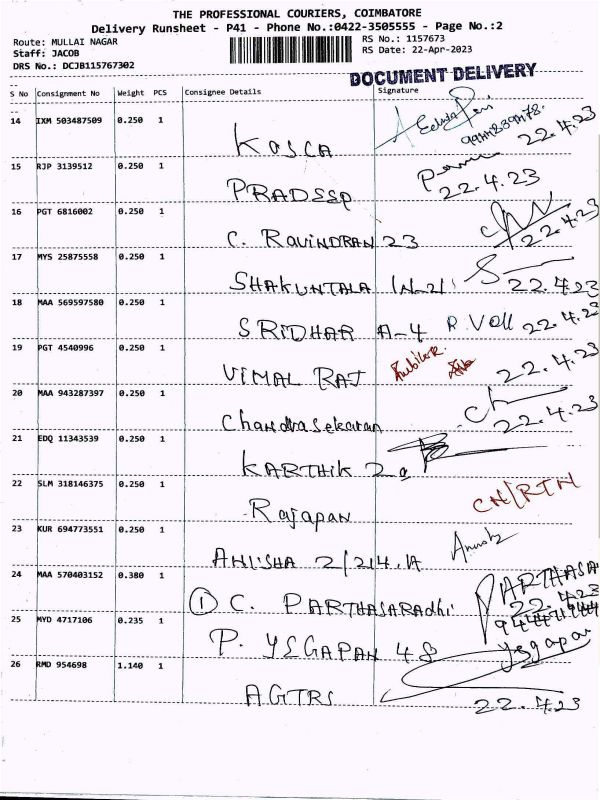 THE PROFESSIONAL COURIERS, COIMBATORE
Delivery Runsheet - P41 - Phone No.:0422-3505555 - Page No.:2
Route: MULLAI NAGAR RS No.: 1157673
Staff: JACOB RS Date: 22-Apr-2023
DRS No.: DCJB115767302
DOCUMENT DELIVERY
S No Consignment No Weight PCS Consignee Details Signature
14 IXM 503487509 0.250 1 KOSCA 22.4.23
15 RJP 3139512 0.250 1 PRADEEP 22.4.23
16 PGT 6816002 0.250 1 C. RAVINDRAN 23 22.4.23
17 MYS 25875558 0.250 1 SHAKUNTALA 22.4.23
18 MAA 569597580 0.250 1 SRIDHAR A-4 22.4.23
19 PGT 4540996 0.250 1 VIMAL RAJ 22.4.23
20 MAA 943287397 0.250 1 Chandrasekaran 22.4.23
21 EDQ 11343539 0.250 1 KARTHIK
22 SLM 318146375 0.250 1 Rajapan CN/RTN
23 KUR 694773551 0.250 1 ANISHA 2/214.A
24 MAA 570403152 0.380 1 ① C. PARTHASARADHI PARTHASA 22.4.23
25 MYD 4717106 0.235 1 P. YSGAPAN 48 ysgapan
26 RMD 954698 1.140 1 AGTRS 22.4.23